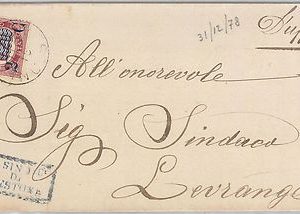 31/12/78
All'onorevole
Sig Sindaco
Levrange
SIND
DI